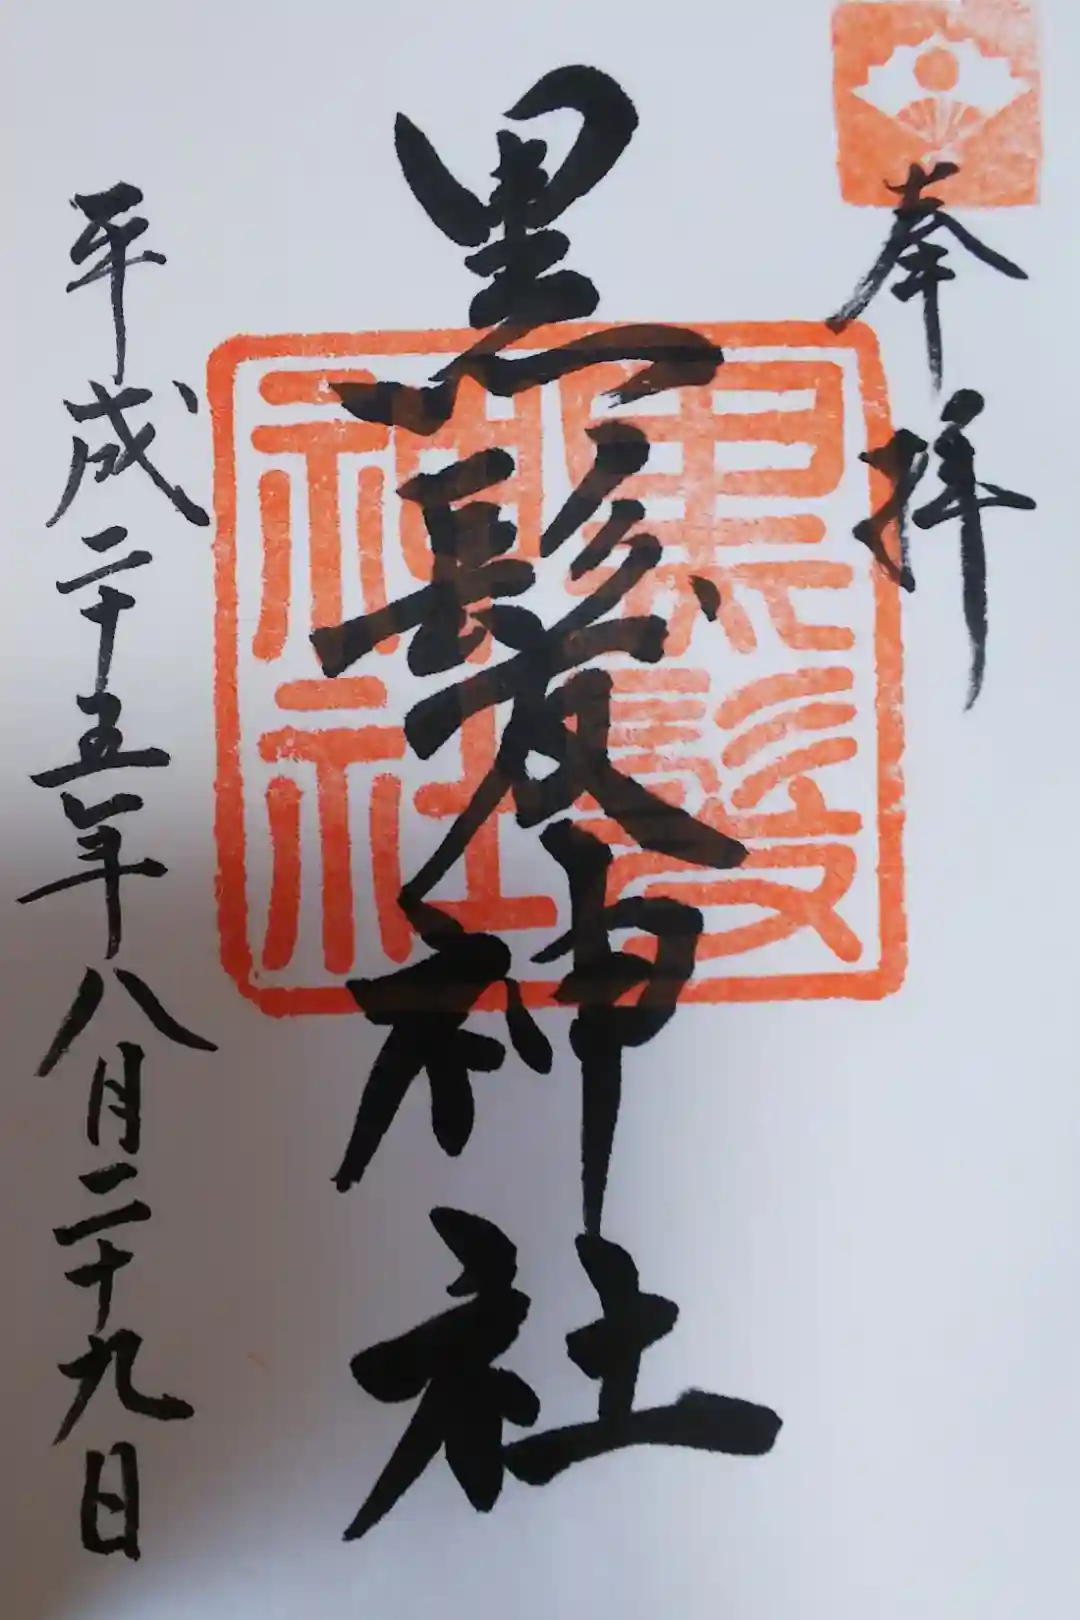 奉拝
黒髪神社
黒髪神社
平成二十五年八月二十九日